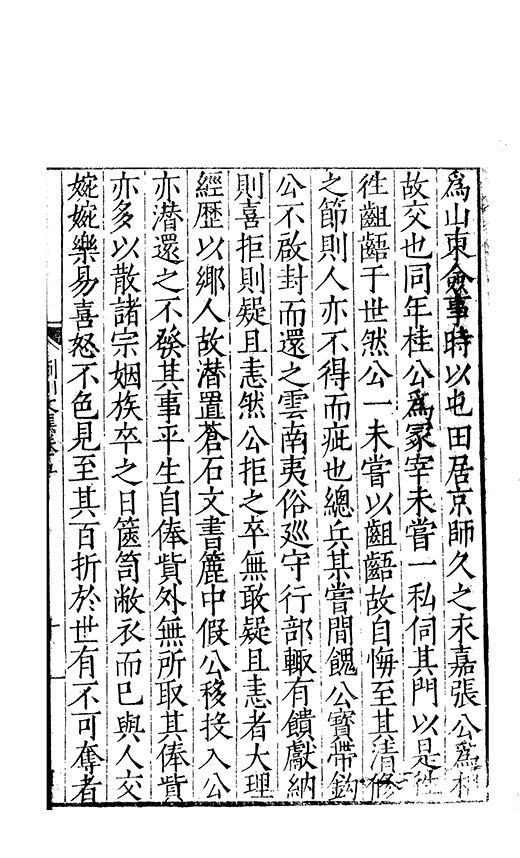 為山東僉事時以屯田居京師久之永嘉張公為相
故交也同年桂公為冢宰未嘗一私伺其門以是往
徃齟齬于世然公一未嘗以齟齬故自悔至其清修
之節則人亦不得而疵也總兵某嘗間餽公寶帶鈎
公不啟封而還之雲南夷俗廵守行部輙有饋獻納
則喜拒則疑且恚然公拒之卒無敢疑且恚者大理
經歷以鄉人故潜置蒼石文書簏中假公移投入公
亦潜還之不發其事平生自俸貲外無所取其俸貲
亦多以散諸宗姻族卒之日篋笥敝衣而已與人交
婉婉樂易喜怒不色見至其百折於世有不可奪者
荆川文集卷
十